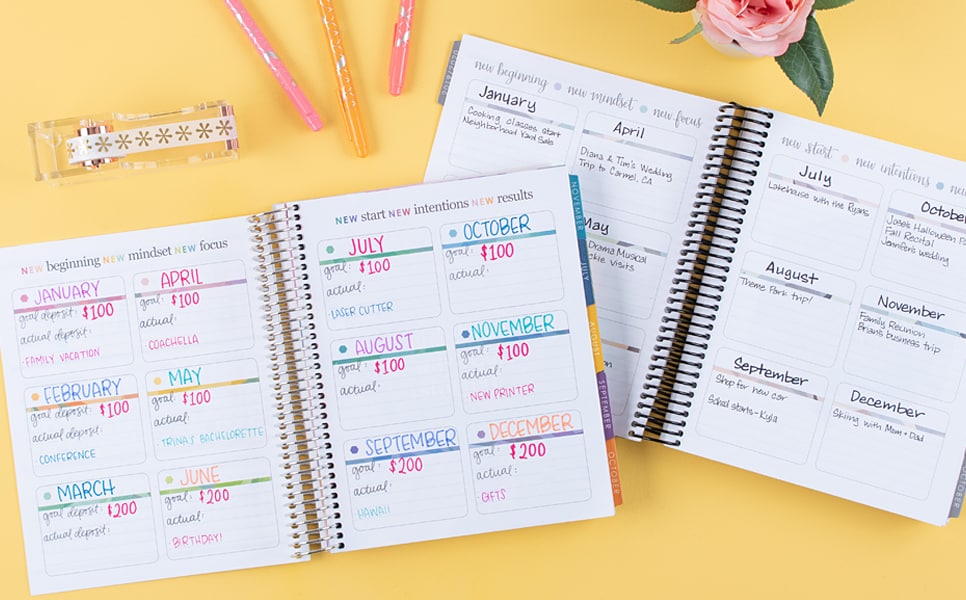 NEW beginning NEW mindset NEW focus
JANUARY
goal deposit: $100
actual deposit:
FAMILY VACATION
APRIL
goal: $100
actual:
COACHELLA
FEBRUARY
goal deposit: $100
actual deposit:
CONFERENCE
MAY
goal: $100
actual:
TRINA'S BACHELORETTE
MARCH
goal deposit: $200
actual deposit:
JUNE
goal: $200
actual:
BIRTHDAY!
NEW start NEW intentions NEW results
JULY
goal: $100
actual:
LASER CUTTER
OCTOBER
goal: $100
actual:
AUGUST
goal: $100
actual:
NOVEMBER
goal: $100
actual:
NEW PRINTER
SEPTEMBER
goal: $200
actual:
HAWAII
DECEMBER
goal: $200
actual:
GIFTS
NOVEMBER
JULY
AUGUST
SEPTEMBER
OCTOBER
new beginning new mindset new focus
January
Cooking classes start
Neighborhood Yard Sale
April
Diana & Tim's Wedding
Trip to Carmel, CA
May
Drama Musical
visits
new start new intentions
July
Lakehouse with the Ryans
October
Josie's Halloween
Fall Recital
Jennifer's wedding
August
Theme Park trip!
November
Family Reunion
Brian's business trip
September
Shop for new car
School starts-Kyla
December
Skiing with Mom + Dad
OCTOBER